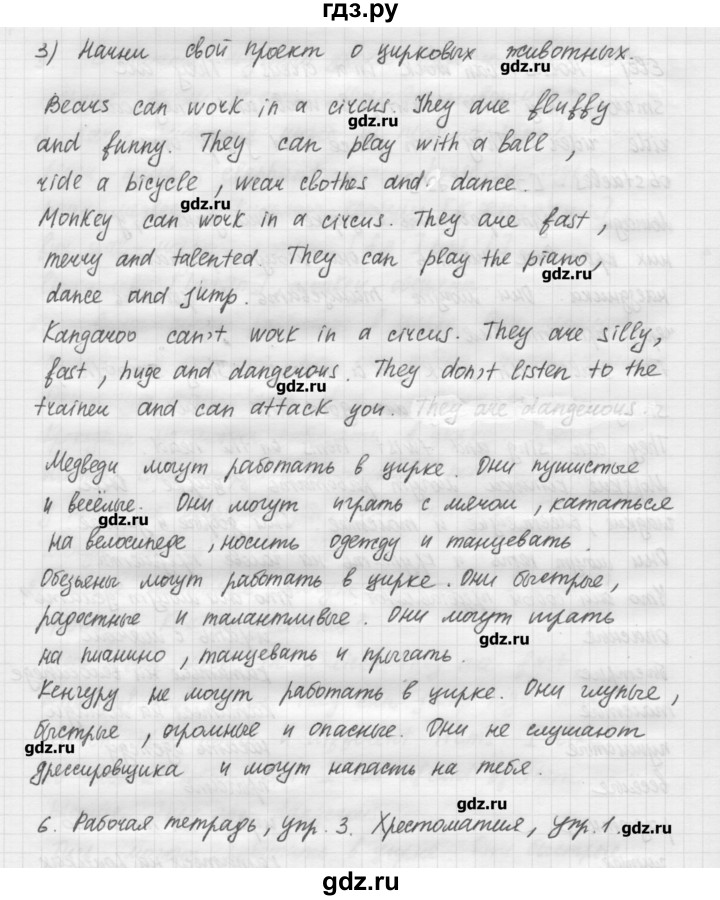 гдз.ру
3) Начни свой проект о цирковых животных.
gdz.ru
Bears can work in a circus. They are fluffy
gdz.ru
and funny. They can play with a ball,
ride a bicycle, wear clothes and dance.
gdz.ru
Monkey can work in a circus. They are fast,
merry and talented. They can play the piano,
gdz.ru
dance and jump.
Kangaroo can't work in a circus. They are silly,
fast, huge and dangerous. They don't listen to the
gdz.ru
trainer and can attack you. They are dangerous.
Медведи могут работать в цирке. Они пушистые
и весёлые. Они могут играть с мячом, кататься
gdz.ru
на велосипеде, носить одежду и танцевать.
Обезьены могут работать в цирке. Они быстрые,
радостные и талантливые. Они могут играть
gdz.ru
на пианино, танцевать и прыгать.
Кенгуру не могут работать в цирке. Они глупые,
быстрые, огромные и опасные. Они не слушают
gdz.ru
дрессировщика и могут напасть на тебя.
gdz.ru
6. Рабочая тетрадь, упр. 3. Хрестоматия, упр. 1.
gdz.ru
gdz.ru